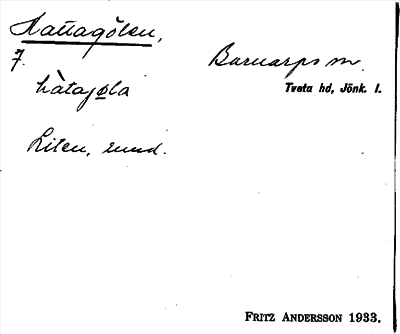 Hattagölen,
7. Barnarps sn.
hàtagøla Tveta hd, Jönk. l.
Liten, rund.
FRITZ ANDERSSON 1933.